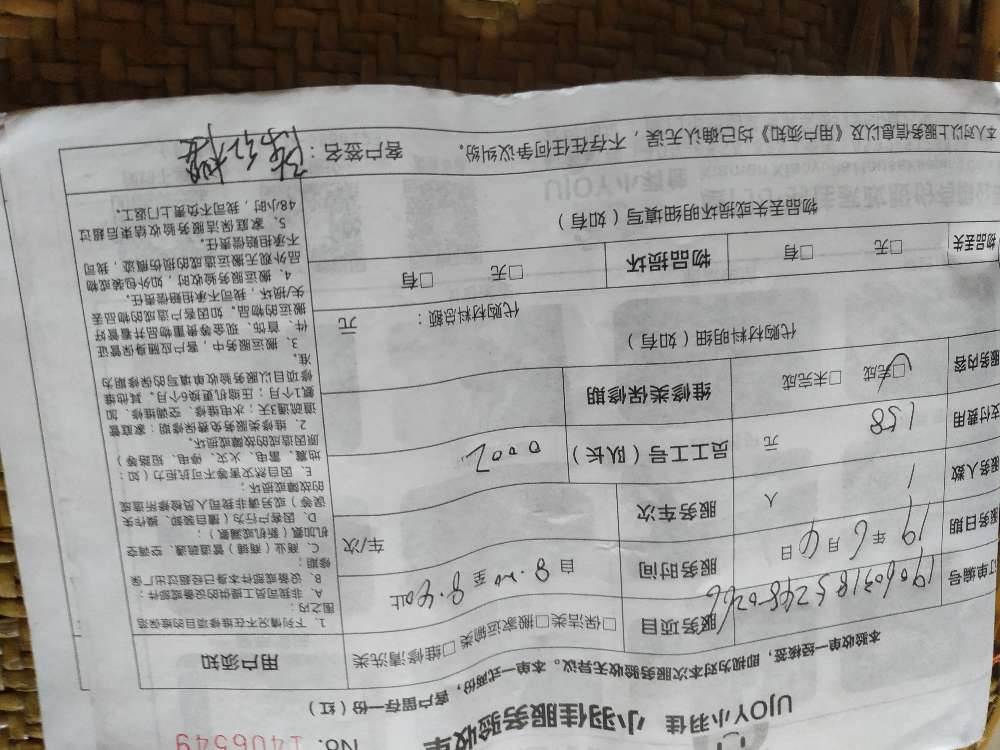 No. 1406549
UJOY小羽佳 小羽佳服务验收单
本验收单一经核签，即视为对本次服务验收无异议。本单一式两份，客户留存一份（红）
订单编号
服务项目 □保洁类□搬家运输类 □维修清洗类
服务日期 19 年 6 月 4 日
服务时间 自 8.00 至 8.40止
服务人数 1 人
服务车次 车/次
支付费用 158 元
员工工号（队长） 0002
服务内容 □完成 □未完成
维修类保修期
代购材料明细（如有）
代购材料总额： 元
物品丢失 □无 □有
物品损坏 □无 □有
物品丢失或损坏明细填写（如有）
用户须知
1、下列情况不在维修项目的维保范
围之内：
A、非我司员工提供的设备或部件；
B、设备或部件本身已经超过出厂保
修期；
C、商业（商铺）管道疏通、空调空
机加氨（新机或漏氨）；
D、因客户行为（擅自装卸、操作失
误等）或另请非我司人员检修所造成
的故障或损坏；
E、因自然灾害等不可抗拒力（如：
地震、雷电、火灾、停电、短路等）
原因造成的故障或损坏。
2、维修类服务免费保修期：家庭管
道疏通3天；水电维修、空调维修、加
氨1个月；压缩机更换6个月。其他维
修项目以服务验收单填写的保修期为
准。
3、搬运服务中，客户应随身保管证
件、首饰、现金等贵重物品并看管好
搬运的物品。如因客户造成的物品丢
失/损坏，我司不承担赔偿责任。
4、搬运服务验收时，如外包装或物
品外观无搬运造成的损伤痕迹，我司
不承担赔偿责任。
5、家庭保洁服务验收结束后超过
48小时，我司不负责上门返工。
本人对以上服务信息以及《用户须知》均已确认无误，不存在任何争议纠纷。
客户签名：